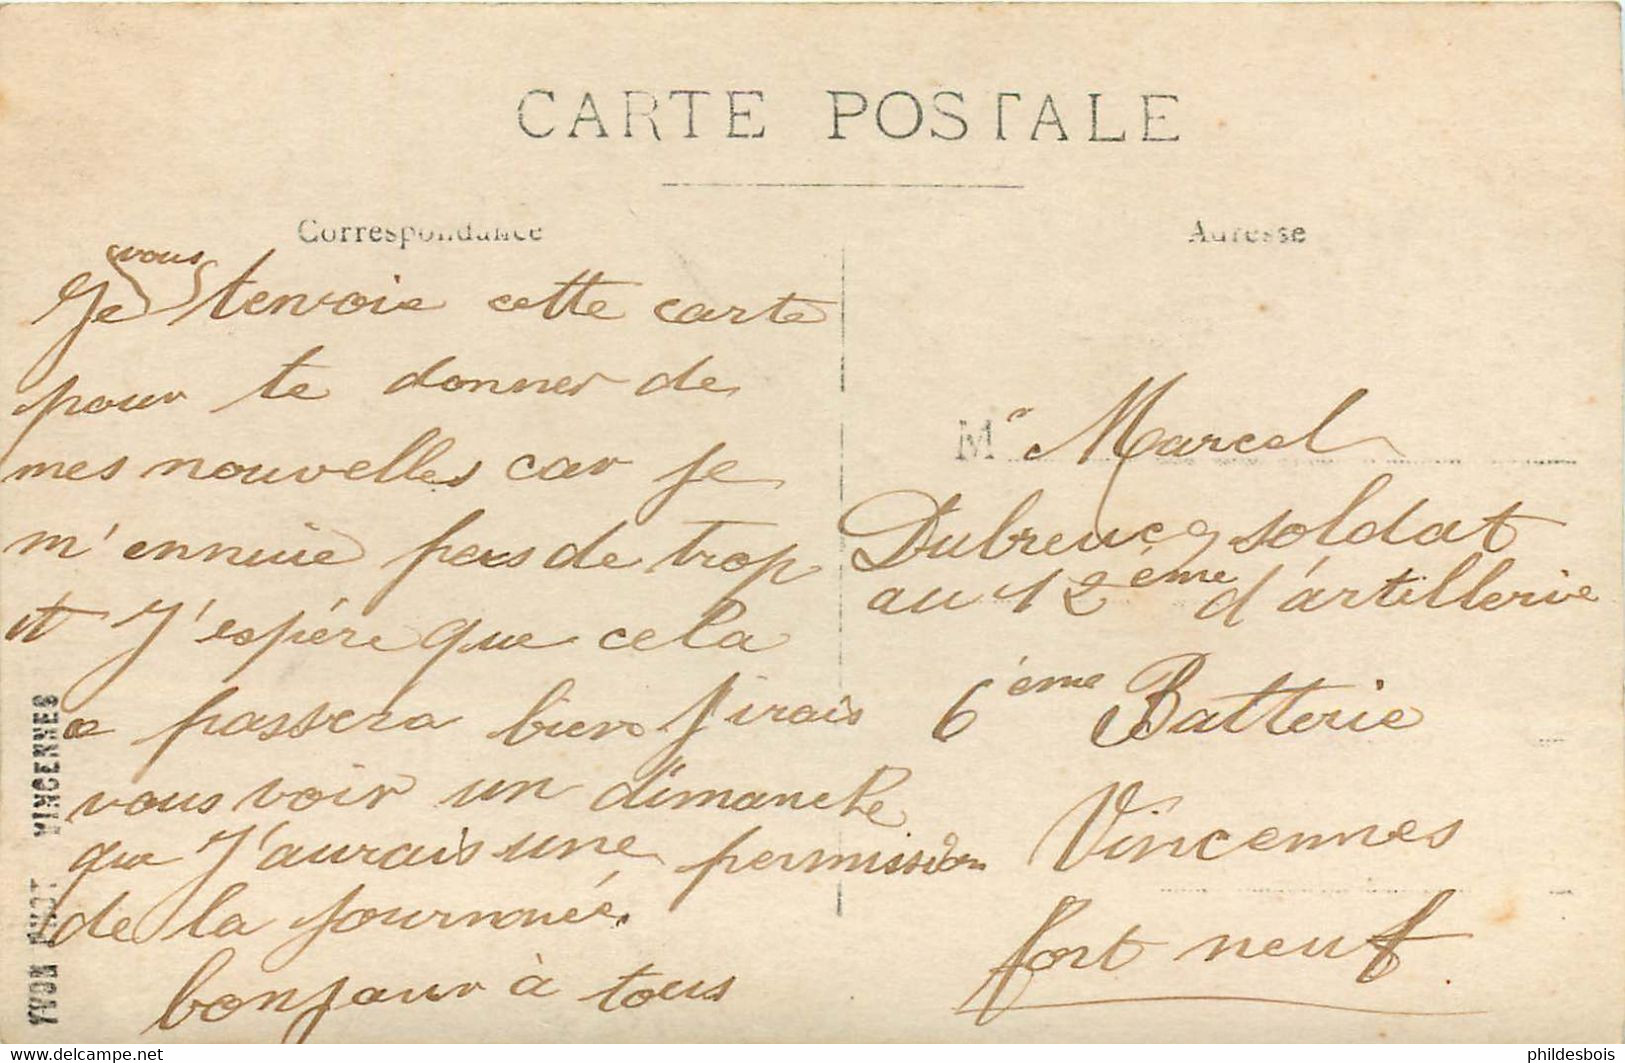 CARTE POSTALE
Correspondance
vous
Je tenvoie cette carte
pour te donner de
mes nouvelles car je
m'ennuie pas de trop
et J'espère que cela
se passera bien j'irais
vous voir un dimanche
que J'aurais une permission
de la journnée.
bonjour à tous
YVON PHOT VINCENNES
Adresse
Mr Marcel
Dubreucq soldat
au 12ème d'artillerie
6ème Batterie
Vincennes
fort neuf
www.delcampe.net
phildesbois